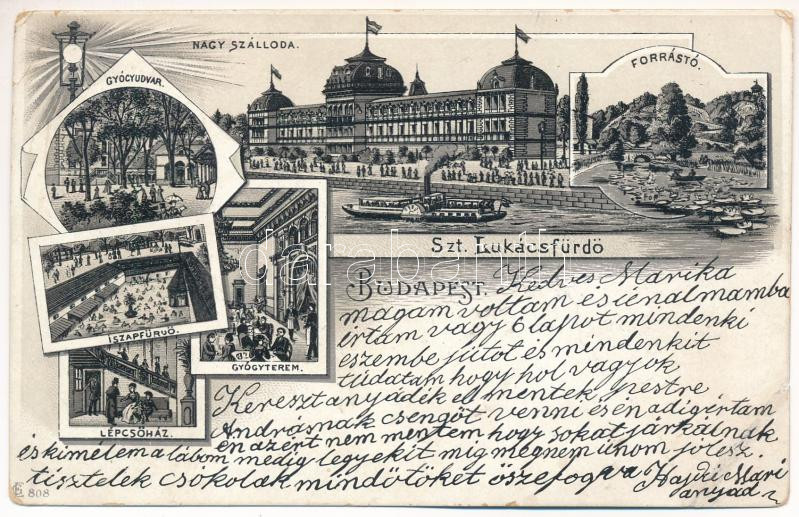 NAGY SZÁLLODA.
FORRÁSTÓ.
GYÓGYUDVAR.
darabanth.com
Szt. Lukácsfürdö
BUDAPEST.
ISZAPFÜRDŐ.
GYÓGYTEREM.
LÉPCSŐHÁZ.
Kedves Marika
magam voltam és unalmamba
irtam vagy 6 lapot mindenki
eszembe jútot és mindenkit
tudatam hogy hol vagyok
Keresztanyádék el mentek pestre
Andrásnak csengöt venni és én adig írtam
én azért nem mentem hogy sokat járkálnak
és kimélem a lábom medig legyekit mig megnem unom jó lesz.
tisztelek csókolak mindötöket öszefogva Hajdi Mari
anyád
808